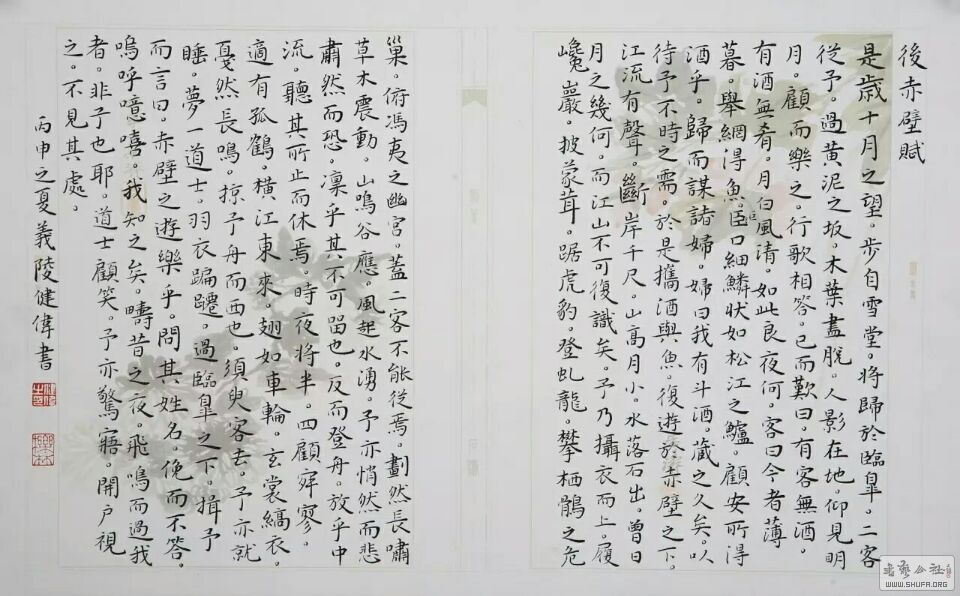 後赤壁賦
是歲十月之望。步自雪堂。將歸於臨皋。二客
從予。過黃泥之坂。木葉盡脫。人影在地。仰見明
月。顧而樂之。行歌相答。已而歎曰。有客無酒。
有酒無肴。月白風清。如此良夜何。客曰今者薄
暮。舉網得魚。巨口細鱗狀如松江之鱸。顧安所得
酒乎。歸而謀諸婦。婦曰我有斗酒。藏之久矣。以
待予不時之需。於是攜酒與魚。復遊於赤壁之下。
江流有聲。斷岸千尺。山高月小。水落石出。曾日
月之幾何。而江山不可復識矣。予乃攝衣而上。履
巉巖。披蒙茸。踞虎豹。登虬龍。攀栖鶻之危
巢。俯馮夷之幽宮。蓋二客不能從焉。劃然長嘯
草木震動。山鳴谷應。風起水湧。予亦悄然而悲
肅然而恐。凜乎其不可留也。反而登舟。放乎中
流。聽其所止而休焉。時夜將半。四顧寂寥。
適有孤鶴。橫江東來。翅如車輪。玄裳縞衣。
戛然長鳴。掠予舟而西也。須臾客去。予亦就
睡。夢一道士。羽衣蹁躚。過臨皋之下。揖予
而言曰。赤壁之遊樂乎。問其姓名。俛而不答。
嗚呼噫嘻。我知之矣。疇昔之夜。飛鳴而過我
者。非子也耶。道士顧笑。予亦驚寤。開戶視
之。不見其處。
丙申之夏義陵健偉書
WWW.SHUFA.ORG